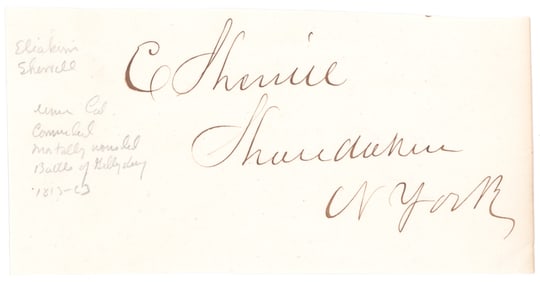 Eliakim
Sherrill
Union Col.
mortally wounded
Battle of Gettysburg
1813-63
E Sherrill
Shandaken
N York